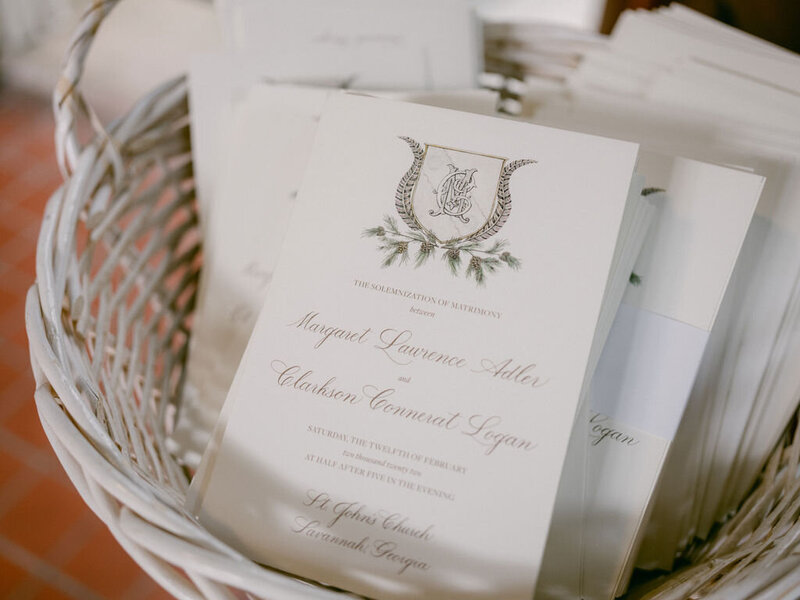 THE SOLEMNIZATION OF MATRIMONY
between
Margaret Lawrence Adler
and
Clarkson Connerat Logan
SATURDAY, THE TWELFTH OF FEBRUARY
two thousand twenty two
AT HALF AFTER FIVE IN THE EVENING
St. John's Church
Savannah, Georgia
Logan